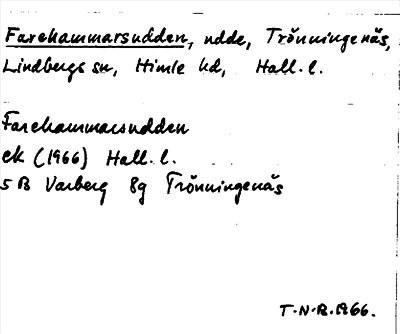 Farehammarsudden, udde, Trönningenäs,
Lindbergs sn, Himle hd, Hall. l.
Farehammarsudden
ek (1966) Hall. l.
5 B Varberg 8g Trönningenäs
T.N-R. 1966.